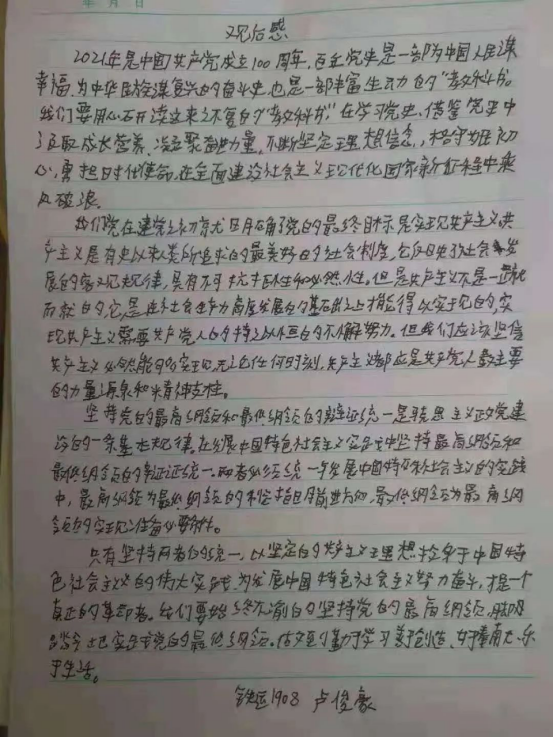 年 月 日
观后感
2021年是中国共产党成立100周年,百年党史是一部为中国人民谋
幸福,为中华民族谋复兴的奋斗史,也是一部丰富生动的“教科书”。
我们要用心研读这来之不易的“教科书”在学习党史、借鉴党史中
汲取成长营养、凝聚奋进力量,不断坚定理想信念,恪守初
心,勇担时代使命,在全面建设社会主义现代化国家新征程中乘
风破浪。
我们党在建党之初就旦明确了党的最终目标是实现共产主义,共
产主义是有史以来人类所追求的最美好的社会制度,它反映了社会发
展的客观规律,具有不可抗拒性和必然性。但是共产主义不是一蹴
而就的,它是在社会生产力高度发展的基础之上才能得以实现的,实
现共产主义需要共产党人的持之以恒的不懈努力。但我们应该坚信
共产主义必然能够实现,无论任何时刻,共产主义都应是共产党人最主要
的力量源泉和精神支柱。
坚持党的最高纲领和最低纲领的辩证统一是马克思主义政党建
设的一条基本规律。在发展中国特色社会主义实践中坚持最高纲领和
最低纲领的辩证统一。两者必须统一于发展中国特色社会主义的实践
中,最高纲领为最低纲领的不断指明前进方向,最低纲领为最高纲
领的实现准备必要条件。
只有坚持两者的统一,以坚定的共产主义理想投身于中国特
色社会主义的伟大实践,为发展中国特色社会主义努力奋斗,才是一个
真正的革命者。我们要始终不渝的坚持党的最高纲领,脚踏
踏实地实践党的最低纲领。做到勤于学习、善于创造、甘于奉献、乐
于生活。
铁运1908 卢俊豪